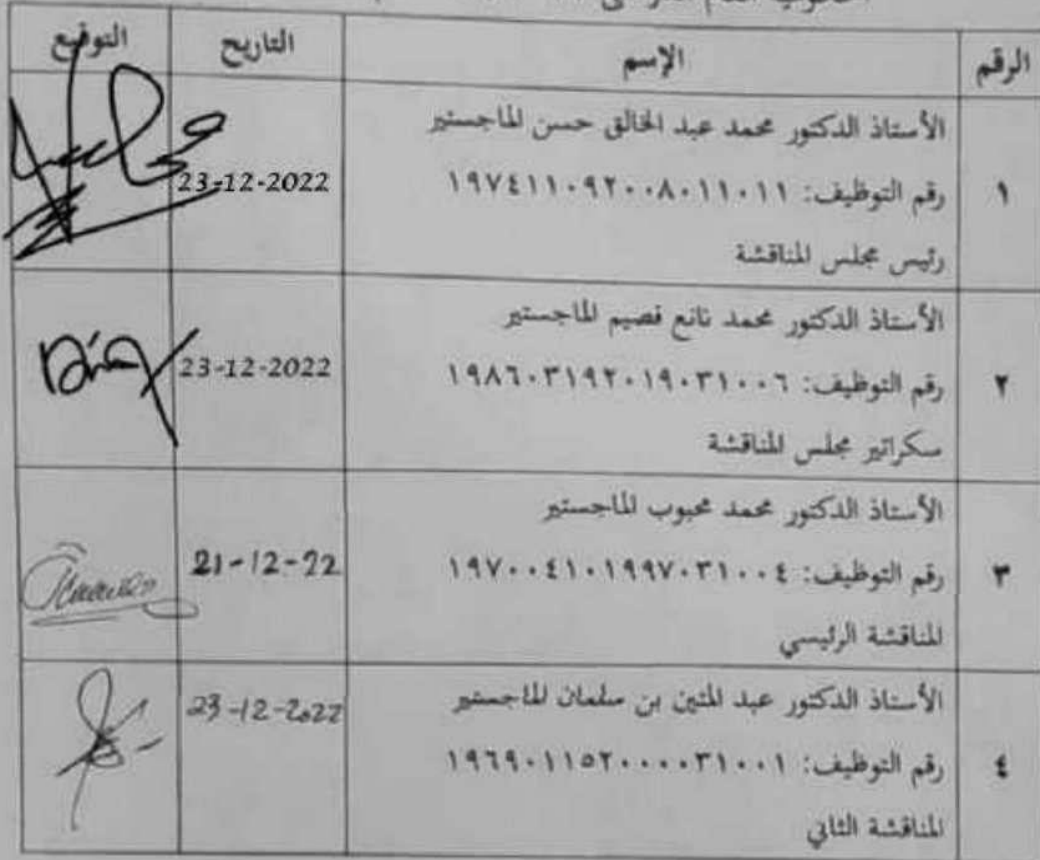 الرقم الإسم التاريخ التوقيع
الأستاذ الدكتور محمد عبد الخالق حسن الماجستير
١ رقم التوظيف: ١٩٧٤١١٠٩٢٠٠٨٠١١٠١١ 23-12-2022
رئيس مجلس المناقشة
الأستاذ الدكتور محمد نانع فصيم الماجستير
٢ رقم التوظيف: ١٩٨٦٠٣١٩٢٠١٩٠٣١٠٠٦ 23-12-2022
سكراتير مجلس المناقشة
الأستاذ الدكتور محمد محبوب الماجستير
٣ رقم التوظيف: ١٩٧٠٠٤١٠١٩٩٧٠٣١٠٠٤ 21-12-22
المناقشة الرئيسي
الأستاذ الدكتور عبد المتين بن سلمان الماجستير 23-12-2022
٤ رقم التوظيف: ١٩٦٩٠١١٥٢٠٠٠٠٣١٠٠١
المناقشة الثاني